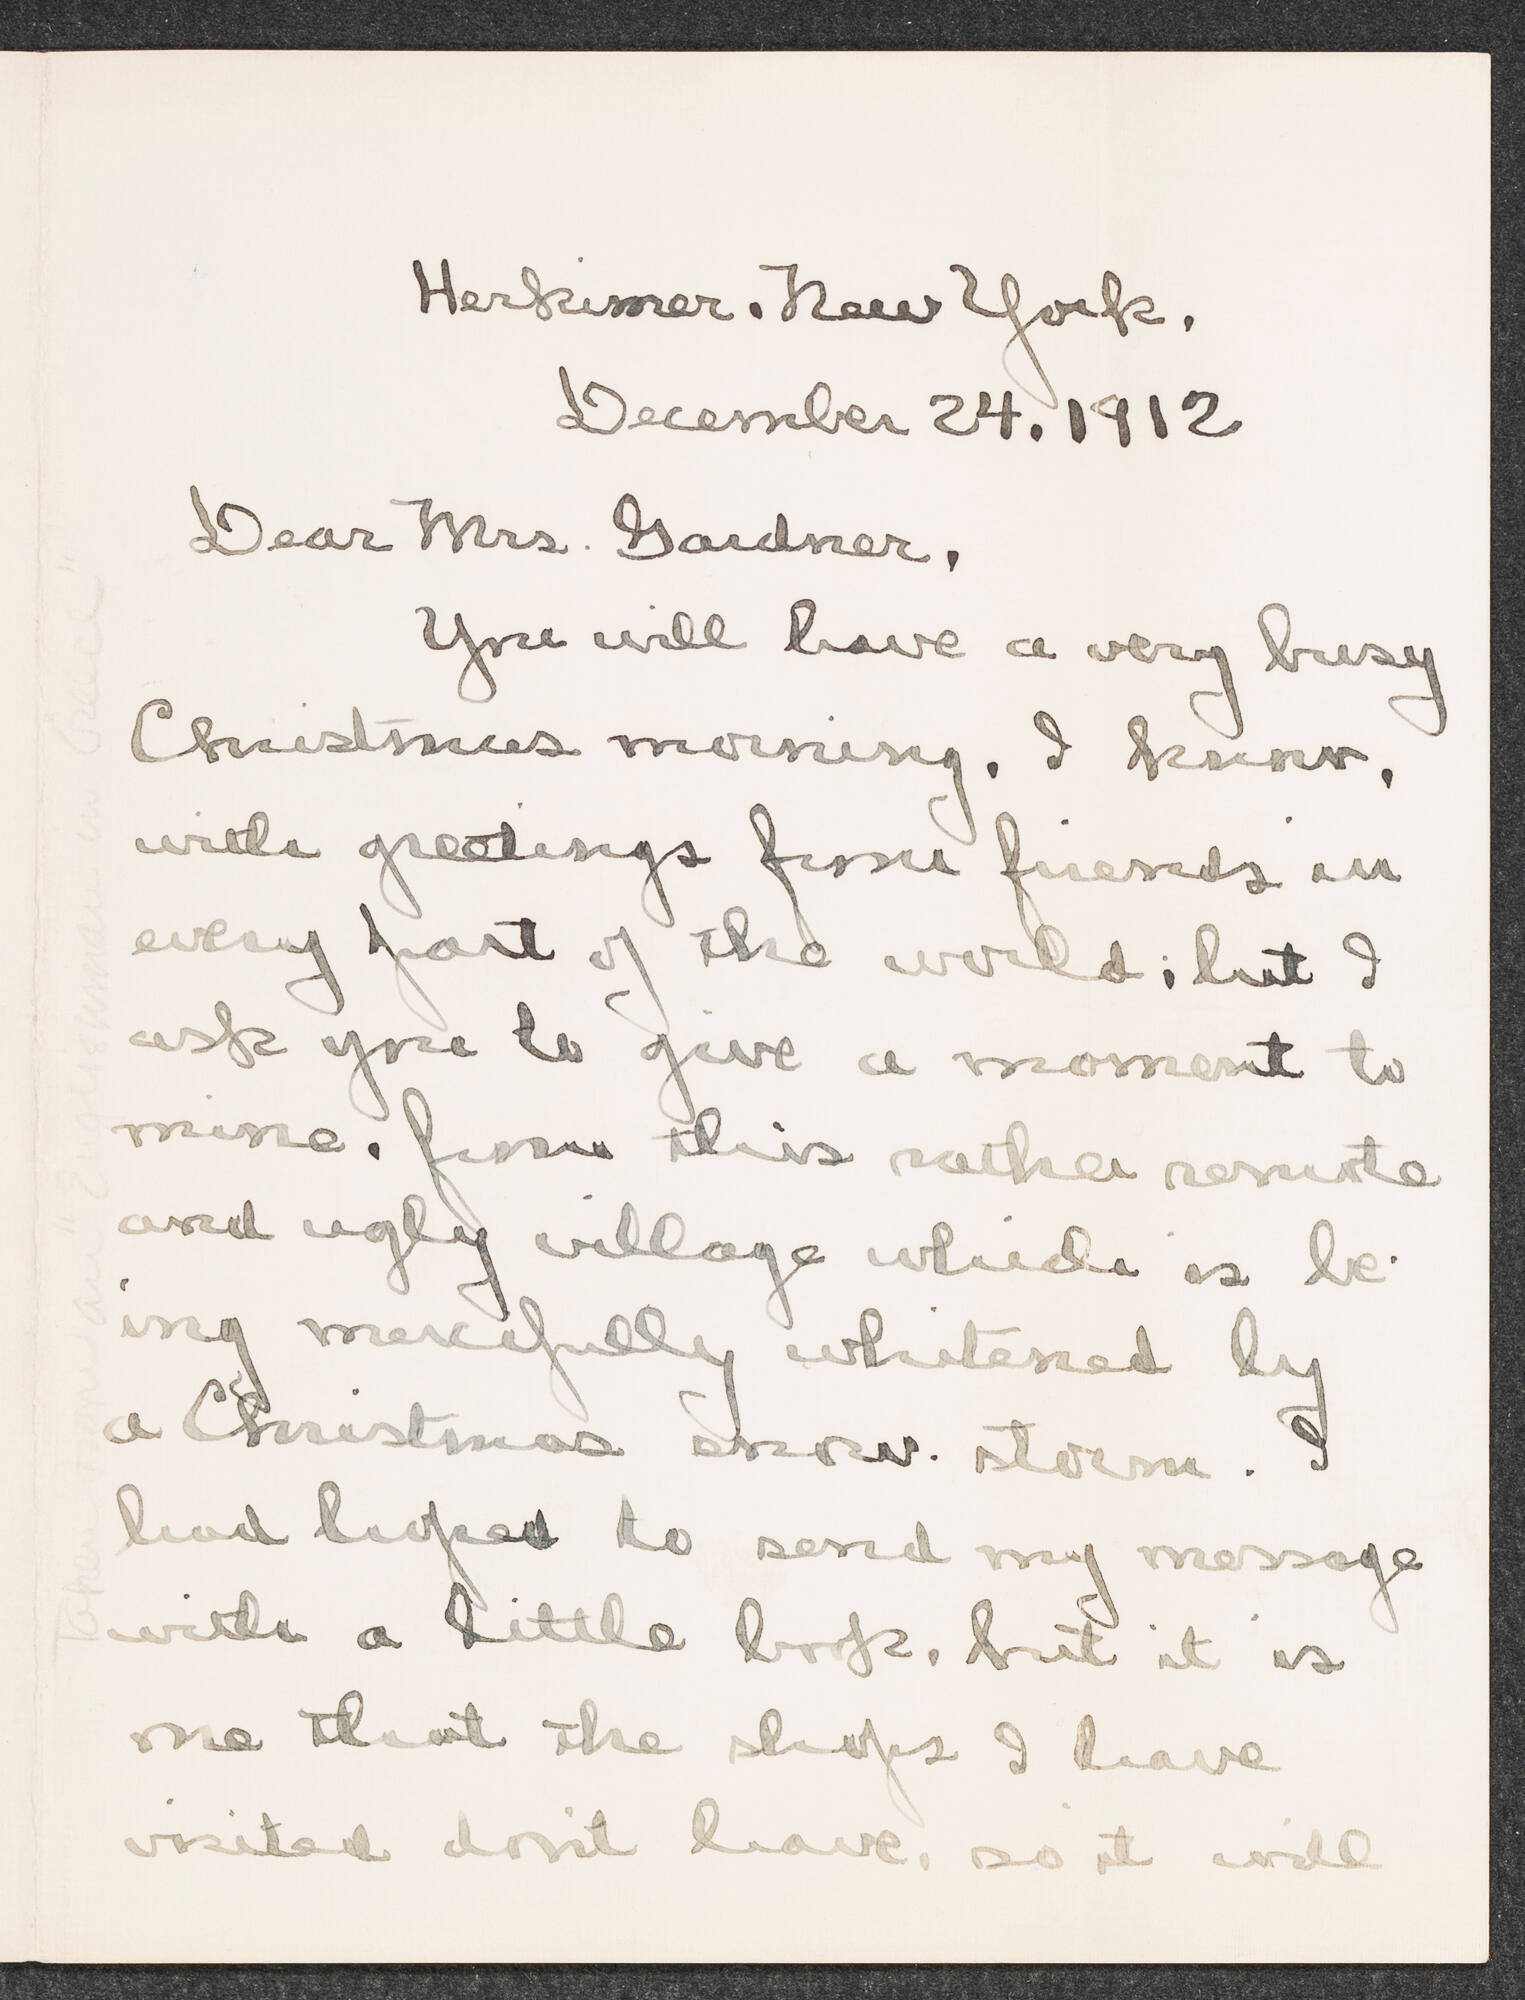 Herkimer. New York.
December 24. 1912
Dear Mrs. Gardner,
You will have a very busy
Christmas morning, I know,
with greetings from friends in
every part of the world; but I
ask you to give a moment to
mine, from this rather remote
and ugly village which is be-
ing mercifully whitened by
a Christmas snow-storm. I
had hoped to send my message
with a little book, but it is
one that the shops I have
visited don't have, so it will
Taken from "an Englishman in